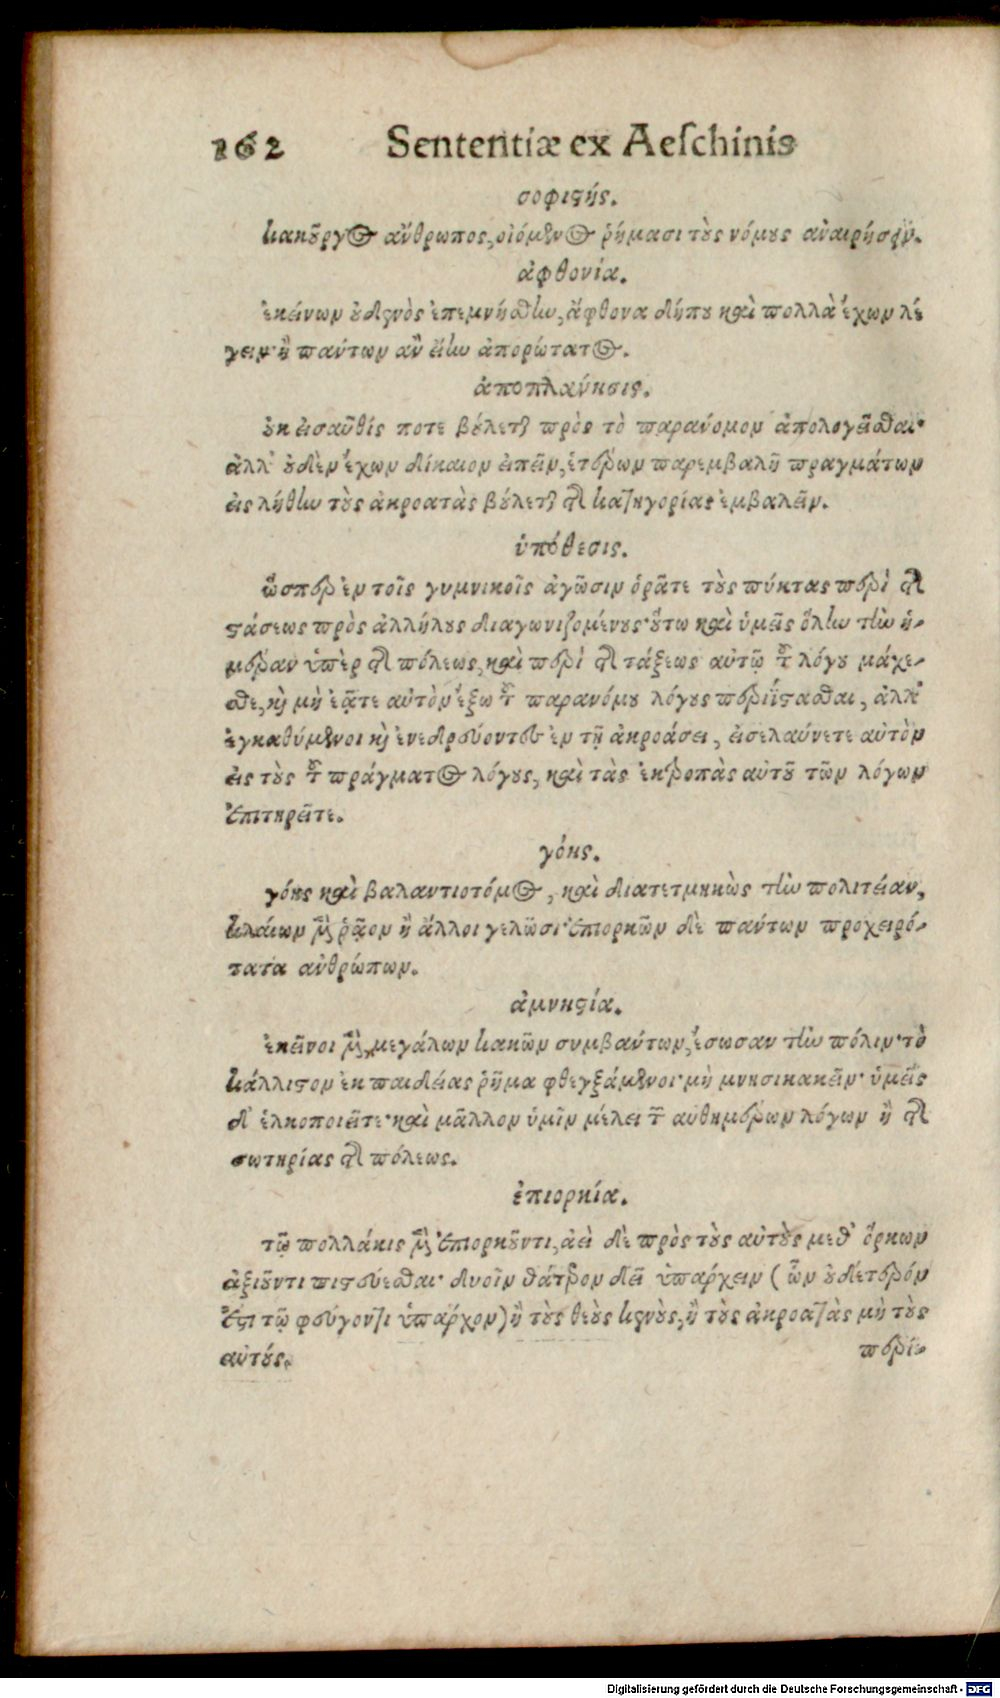 162 Sententiæ ex Aeſchinis
σοφιϛής.
κακοῦργος ἄνθρωπος, οἰόμενος ῥήμασι τοὺς νόμους ἀναιρήσειν.
ἀφθονία.
ἐκείνων οὐδενὸς ἐπεμνήσθην, ἄφθονα δήπου καὶ πολλὰ ἔχων λέ
γειν· ἢ πάντων ἂν εἴην ἀπορώτατος.
ἀποπλάνησις.
οὐκ εἰσαῦθίς ποτε βούλεται πρὸς τὸ παράνομον ἀπολογεῖσθαι·
ἀλλ' οὐδὲν ἔχων δίκαιον εἰπεῖν, ἑτέρων παρεμβολῇ πραγμάτων
εἰς λήθην τοὺς ἀκροατὰς βούλεται τῆς κατηγορίας ἐμβαλεῖν.
ὑπόθεσις.
ὥσπερ ἐν τοῖς γυμνικοῖς ἀγῶσιν ὁρᾶτε τοὺς πύκτας περὶ τῆς
ϛάσεως πρὸς ἀλλήλους διαγωνιζομένους· οὕτω καὶ ὑμεῖς ὅλην τὴν ἡ-
μέραν ὑπὲρ τῆς πόλεως, καὶ περὶ τῆς τάξεως αὐτῷ τοῦ λόγου μάχε-
σθε, καὶ μὴ ἐᾶτε αὐτὸν ἔξω τοῦ παρανόμου λόγους περιίϛασθαι, ἀλλ'
ἐγκαθήμενοι καὶ ἐνεδρεύοντες ἐν τῇ ἀκροάσει, εἰσελαύνετε αὐτὸν
εἰς τοὺς τοῦ πράγματος λόγους, καὶ τὰς ἐκτροπὰς αὐτοῦ τῶν λόγων
ἐπιτηρεῖτε.
γόης.
γόης καὶ βαλαντιοτόμος, καὶ διατετμηκὼς τὴν πολιτείαν,
κλαίων μὲν ῥᾷον ἢ ἄλλοι γελῶσι· ἐπιορκῶν δὲ πάντων προχειρό-
τατα ἀνθρώπων.
ἀμνηϛία.
ἐκεῖνοι μὲν, μεγάλων κακῶν συμβάντων, ἔσωσαν τὴν πόλιν· τὸ
κάλλιϛον ἐκ παιδείας ῥῆμα φθεγξάμενοι· μὴ μνησικακεῖν· ὑμεῖς
δ' ἑλκοποιεῖτε· καὶ μᾶλλον ὑμῖν μέλει τῶν αὐθημέρων λόγων ἢ τῆς
σωτηρίας τῆς πόλεως.
ἐπιορκία.
τῷ πολλάκις μὲν ἐπιορκοῦντι, ἀεὶ δὲ πρὸς τοὺς αὐτοὺς μεθ' ὅρκων
ἀξιοῦντι πιϛεύεσθαι· δυοῖν θάτερον δεῖ ὑπάρχειν (ὧν οὐδέτερόν
ἐϛι τῷ φεύγοντι ὑπάρχον) ἢ τοὺς θεοὺς κενοὺς, ἢ τοὺς ἀκροατὰς μὴ τοὺς
αὐτούς.
περι-
Digitalisierung gefördert durch die Deutsche Forschungsgemeinschaft - DFG